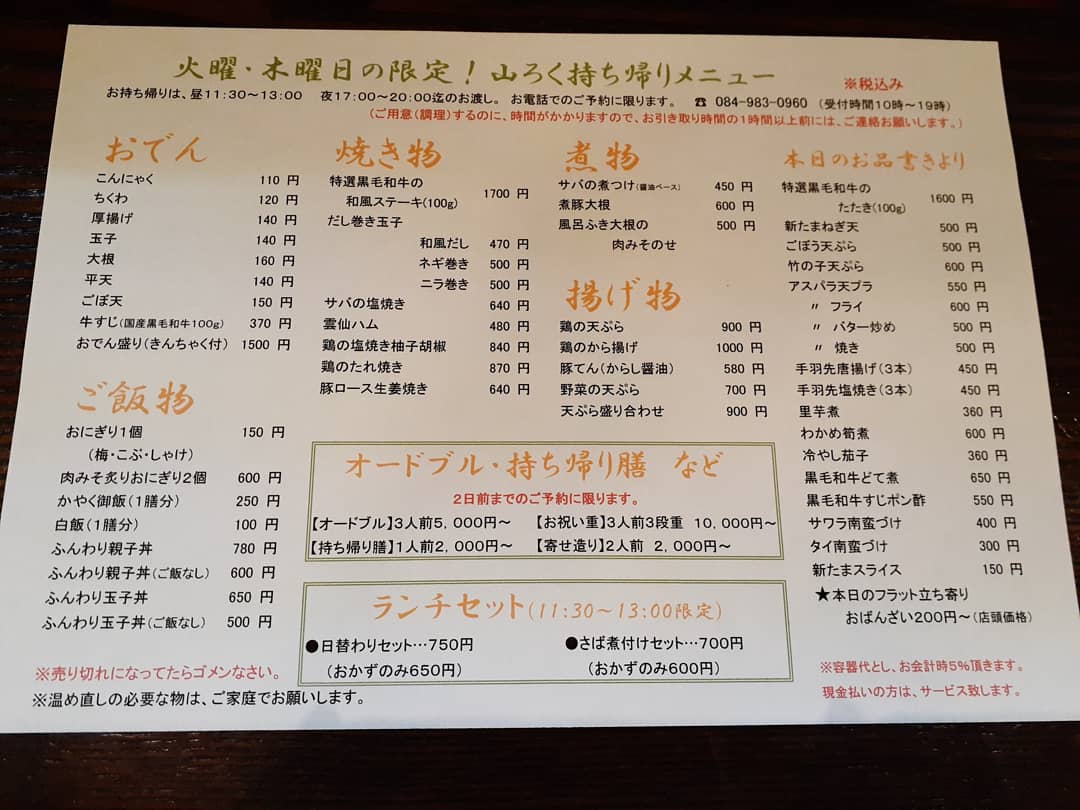 火曜・木曜日の限定！山ろく持ち帰りメニュー
※税込み
お持ち帰りは、昼11：30～13：00　夜17：00～20：00迄のお渡し。　お電話でのご予約に限ります。　☎ 084-983-0960　（受付時間10時～19時）
（ご用意（調理）するのに、時間がかかりますので、お引き取り時間の1時間以上前には、ご連絡お願いします。）
おでん
こんにゃく　110 円
ちくわ　120 円
厚揚げ　140 円
玉子　140 円
大根　160 円
平天　140 円
ごぼ天　150 円
牛すじ（国産黒毛和牛100g）　370 円
おでん盛り（きんちゃく付）　1500 円
ご飯物
おにぎり1個　150 円
（梅・こぶ・しゃけ）
肉みそ炙りおにぎり2個　600 円
かやく御飯（1膳分）　250 円
白飯（1膳分）　100 円
ふんわり親子丼　780 円
ふんわり親子丼（ご飯なし）　600 円
ふんわり玉子丼　650 円
ふんわり玉子丼（ご飯なし）　500 円
※売り切れになってたらゴメンなさい。
※温め直しの必要な物は、ご家庭でお願いします。
焼き物
特選黒毛和牛の
和風ステーキ（100g）　1700 円
だし巻き玉子
和風だし　470 円
ネギ巻き　500 円
ニラ巻き　500 円
サバの塩焼き　640 円
雲仙ハム　480 円
鶏の塩焼き柚子胡椒　840 円
鶏のたれ焼き　870 円
豚ロース生姜焼き　640 円
煮物
サバの煮つけ（醤油ベース）　450 円
煮豚大根　600 円
風呂ふき大根の　500 円
肉みそのせ
揚げ物
鶏の天ぷら　900 円
鶏のから揚げ　1000 円
豚てん（からし醤油）　580 円
野菜の天ぷら　700 円
天ぷら盛り合わせ　900 円
オードブル・持ち帰り膳　など
2日前までのご予約に限ります。
【オードブル】3人前5，000円～　【お祝い重】3人前3段重　10，000円～
【持ち帰り膳】1人前2，000円～　【寄せ造り】2人前　2，000円～
ランチセット（11：30～13：00限定）
●日替わりセット…750円　●さば煮付けセット…700円
（おかずのみ650円）　（おかずのみ600円）
本日のお品書きより
特選黒毛和牛の
たたき（100g）　1600 円
新たまねぎ天　500 円
ごぼう天ぷら　500 円
竹の子天ぷら　600 円
アスパラ天プラ　550 円
〃　フライ　600 円
〃　バター炒め　500 円
〃　焼き　500 円
手羽先唐揚げ（3本）　450 円
手羽先塩焼き（3本）　450 円
里芋煮　360 円
わかめ筍煮　600 円
冷やし茄子　360 円
黒毛和牛どて煮　650 円
黒毛和牛すじポン酢　550 円
サワラ南蛮づけ　400 円
タイ南蛮づけ　300 円
新たまスライス　150 円
★本日のフラット立ち寄り
おばんざい200円～（店頭価格）
※容器代とし、お会計時5％頂きます。
現金払いの方は、サービス致します。